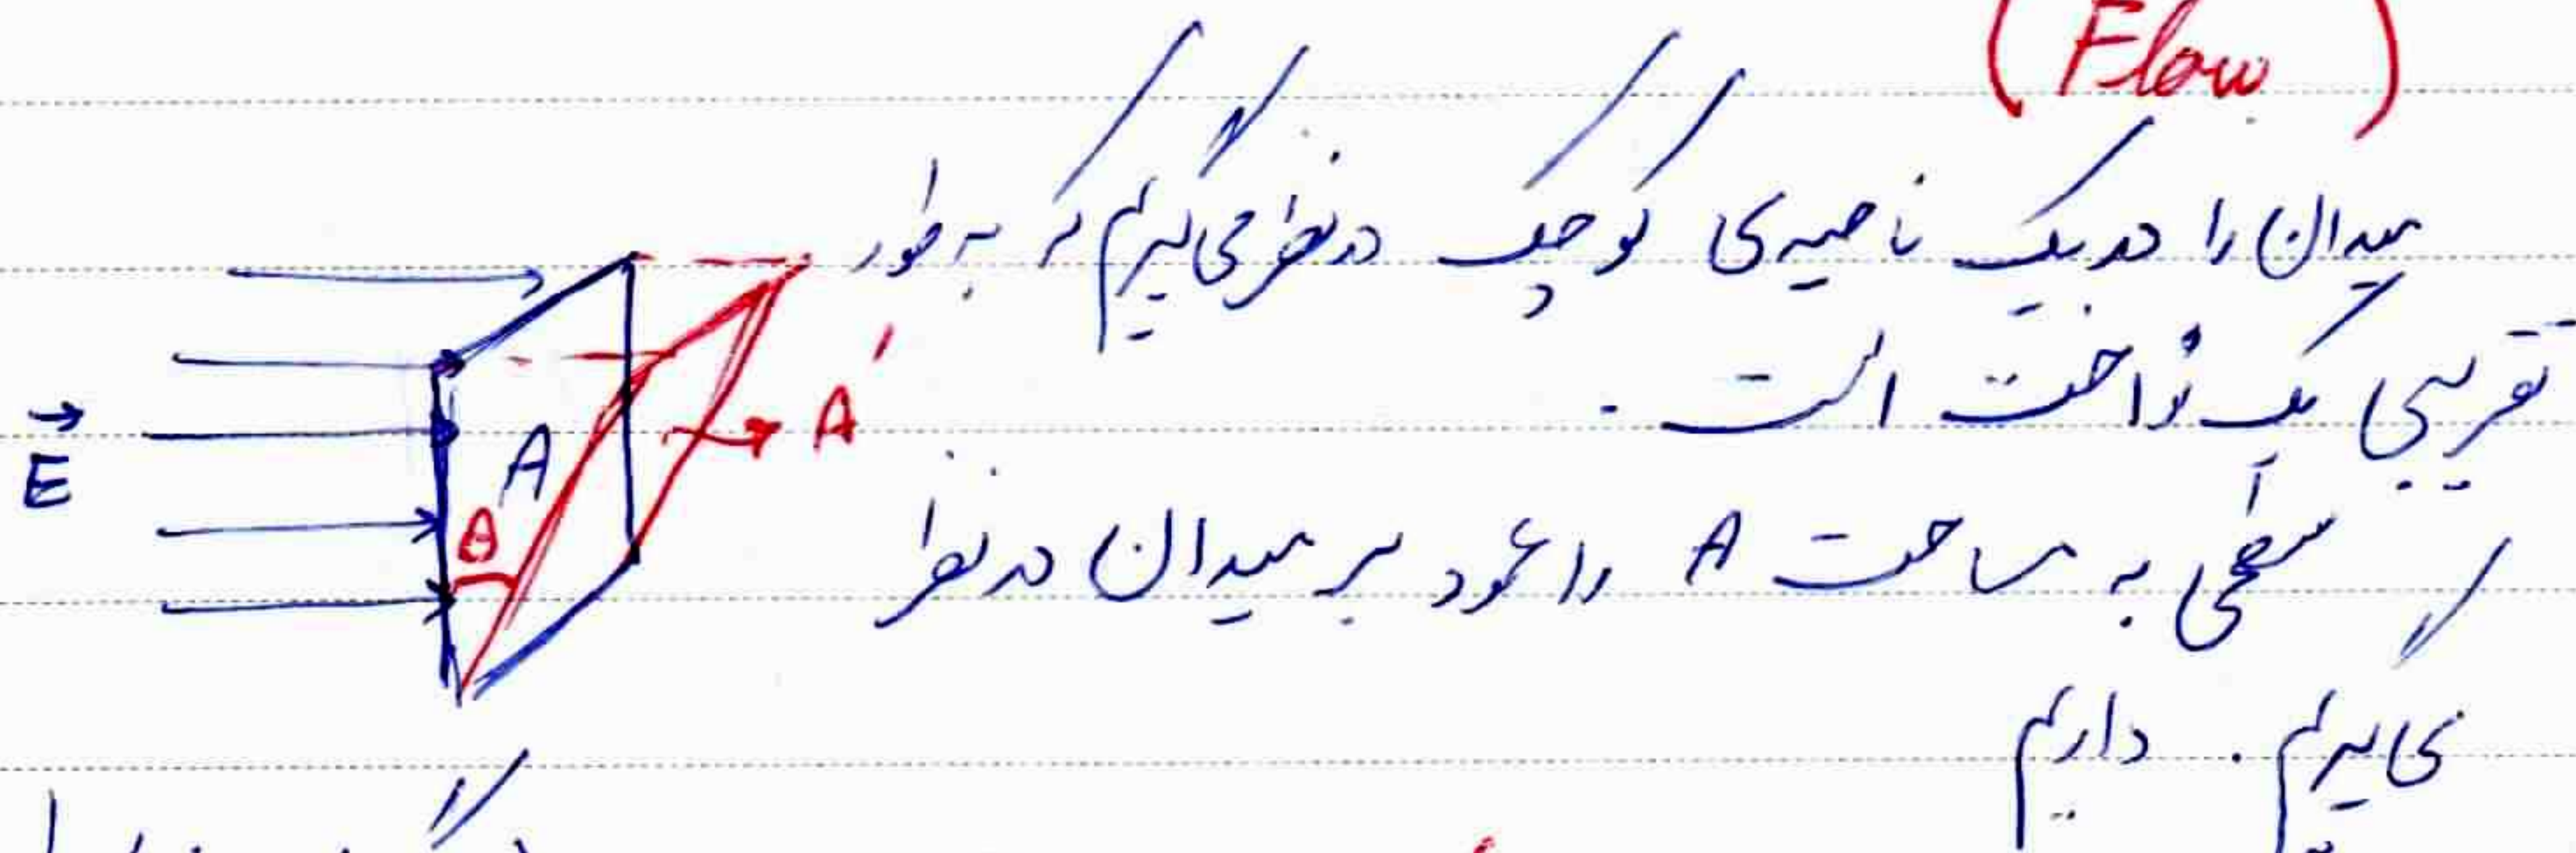 (Flow)
میدان را در یک ناحیه‌ی کوچک در نظر می‌گیریم که به طور
تقریبی یک نواخت است.
سطحی به مساحت A را عمود بر میدان در نظر
می‌گیریم. داریم
E
A
θ
A'